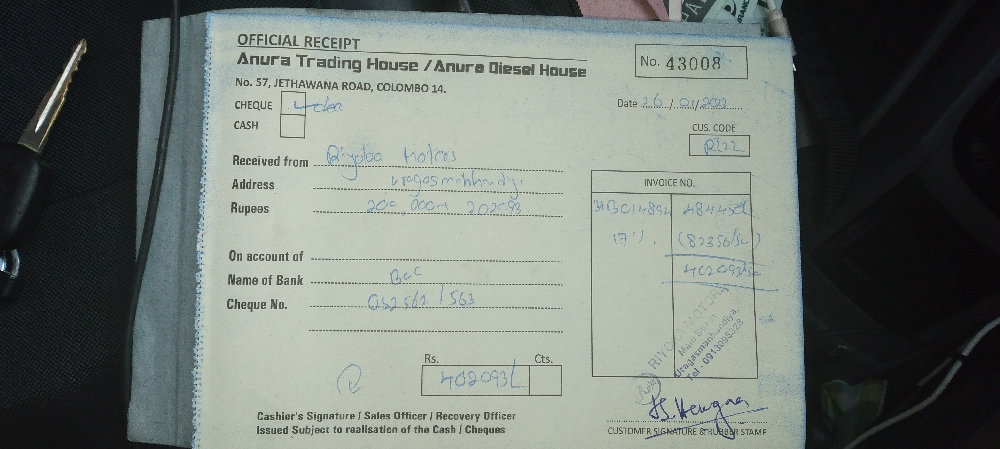 OFFICIAL RECEIPT
Anura Trading House / Anura Diesel House
No. 43008
No. 57, JETHAWANA ROAD, COLOMBO 14.
CHEQUE
Date 26 / 01/2022
CASH
CUS. CODE
R122
Received from Riyoko Motors
Address Uragasmanhandiya
INVOICE NO.
Rupees 200,000/- 202093
17%. (82356/50)
402093/50
On account of
Name of Bank BOC
Cheque No. 052562 / 563
RIYOKO MOTORS
Main Street
Uragasmanhandiya.
Tel - 0913096328
Rs. Cts.
402093/
Cashier's Signature / Sales Officer / Recovery Officer
Issued Subject to realisation of the Cash / Cheques
CUSTOMER SIGNATURE & RUBBER STAMP